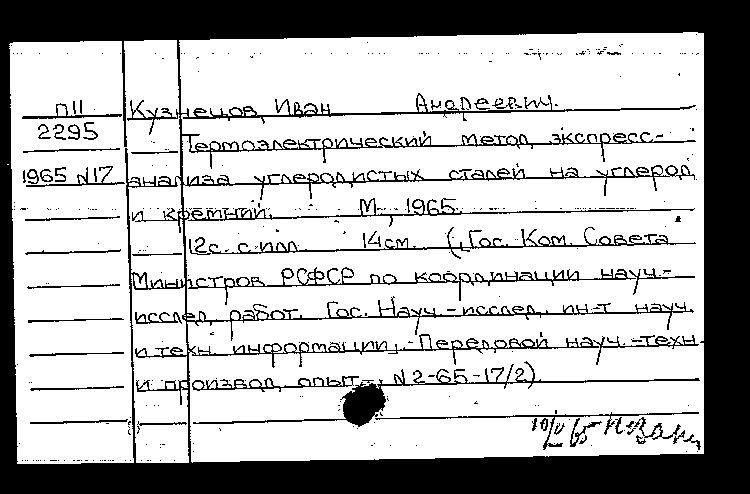 П11 Кузнецов, Иван Андреевич.
2295 Термоэлектрический метод экспресс-
1965 N17 анализа углеродистых сталей на углерод
и кремний. М., 1965.
12с. с илл. 14см. (Гос. Ком. Совета
Министров РСФСР по координации науч.-
исслед. работ. Гос. Науч.-исслед. ин-т науч.
и техн. информации. Передовой науч.-техн.
и производ. опыт, N2-65-17/2).